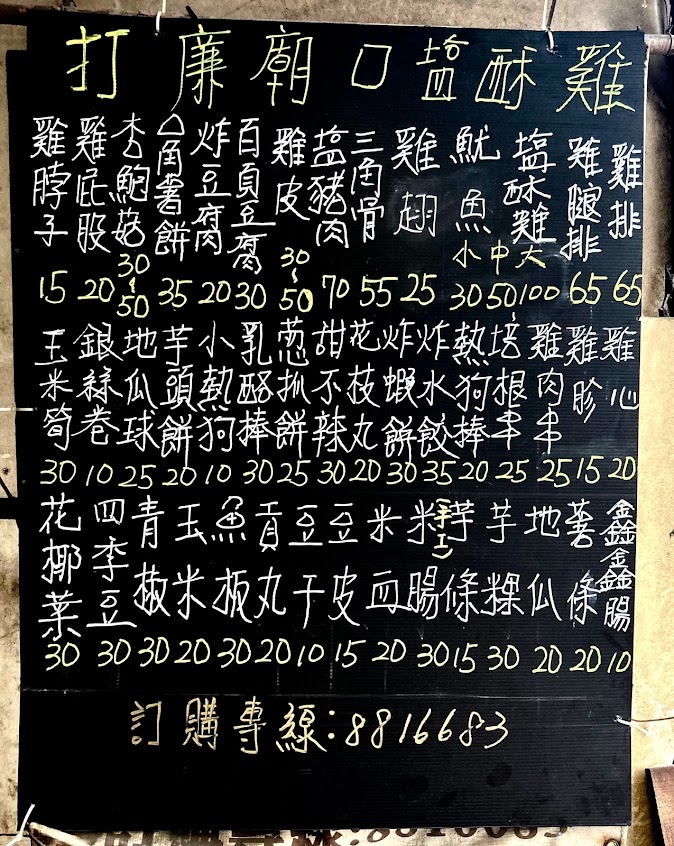 打廉廟口塩酥雞
雞排 65
雞腿排 65
塩酥雞 小30 中50 大100
魷魚
雞翅 25
三角骨 55
塩豬肉 70
雞皮 30~50
百頁豆腐 30
炸豆腐 20
△角薯餅 35
杏鮑菇 30~50
雞屁股 20
雞脖子 15
雞心 20
雞胗 15
雞肉串 25
培根串 25
熱狗棒 20
炸水餃 35
炸蝦餅 30
花枝丸 20
甜不辣 30
葱抓餅 25
乳酪棒 30
小熱狗 10
芋頭餅 20
地瓜球 25
銀絲卷 10
玉米筍 30
鑫鑫腸 10
薯條 20
地瓜 20
芋粿 30
手工芋條 15
米腸 30
米血 20
豆皮 15
豆干 10
貢丸 20
魚板 30
玉米 20
青椒 30
四季豆 30
花椰菜 30
訂購專線:8816683